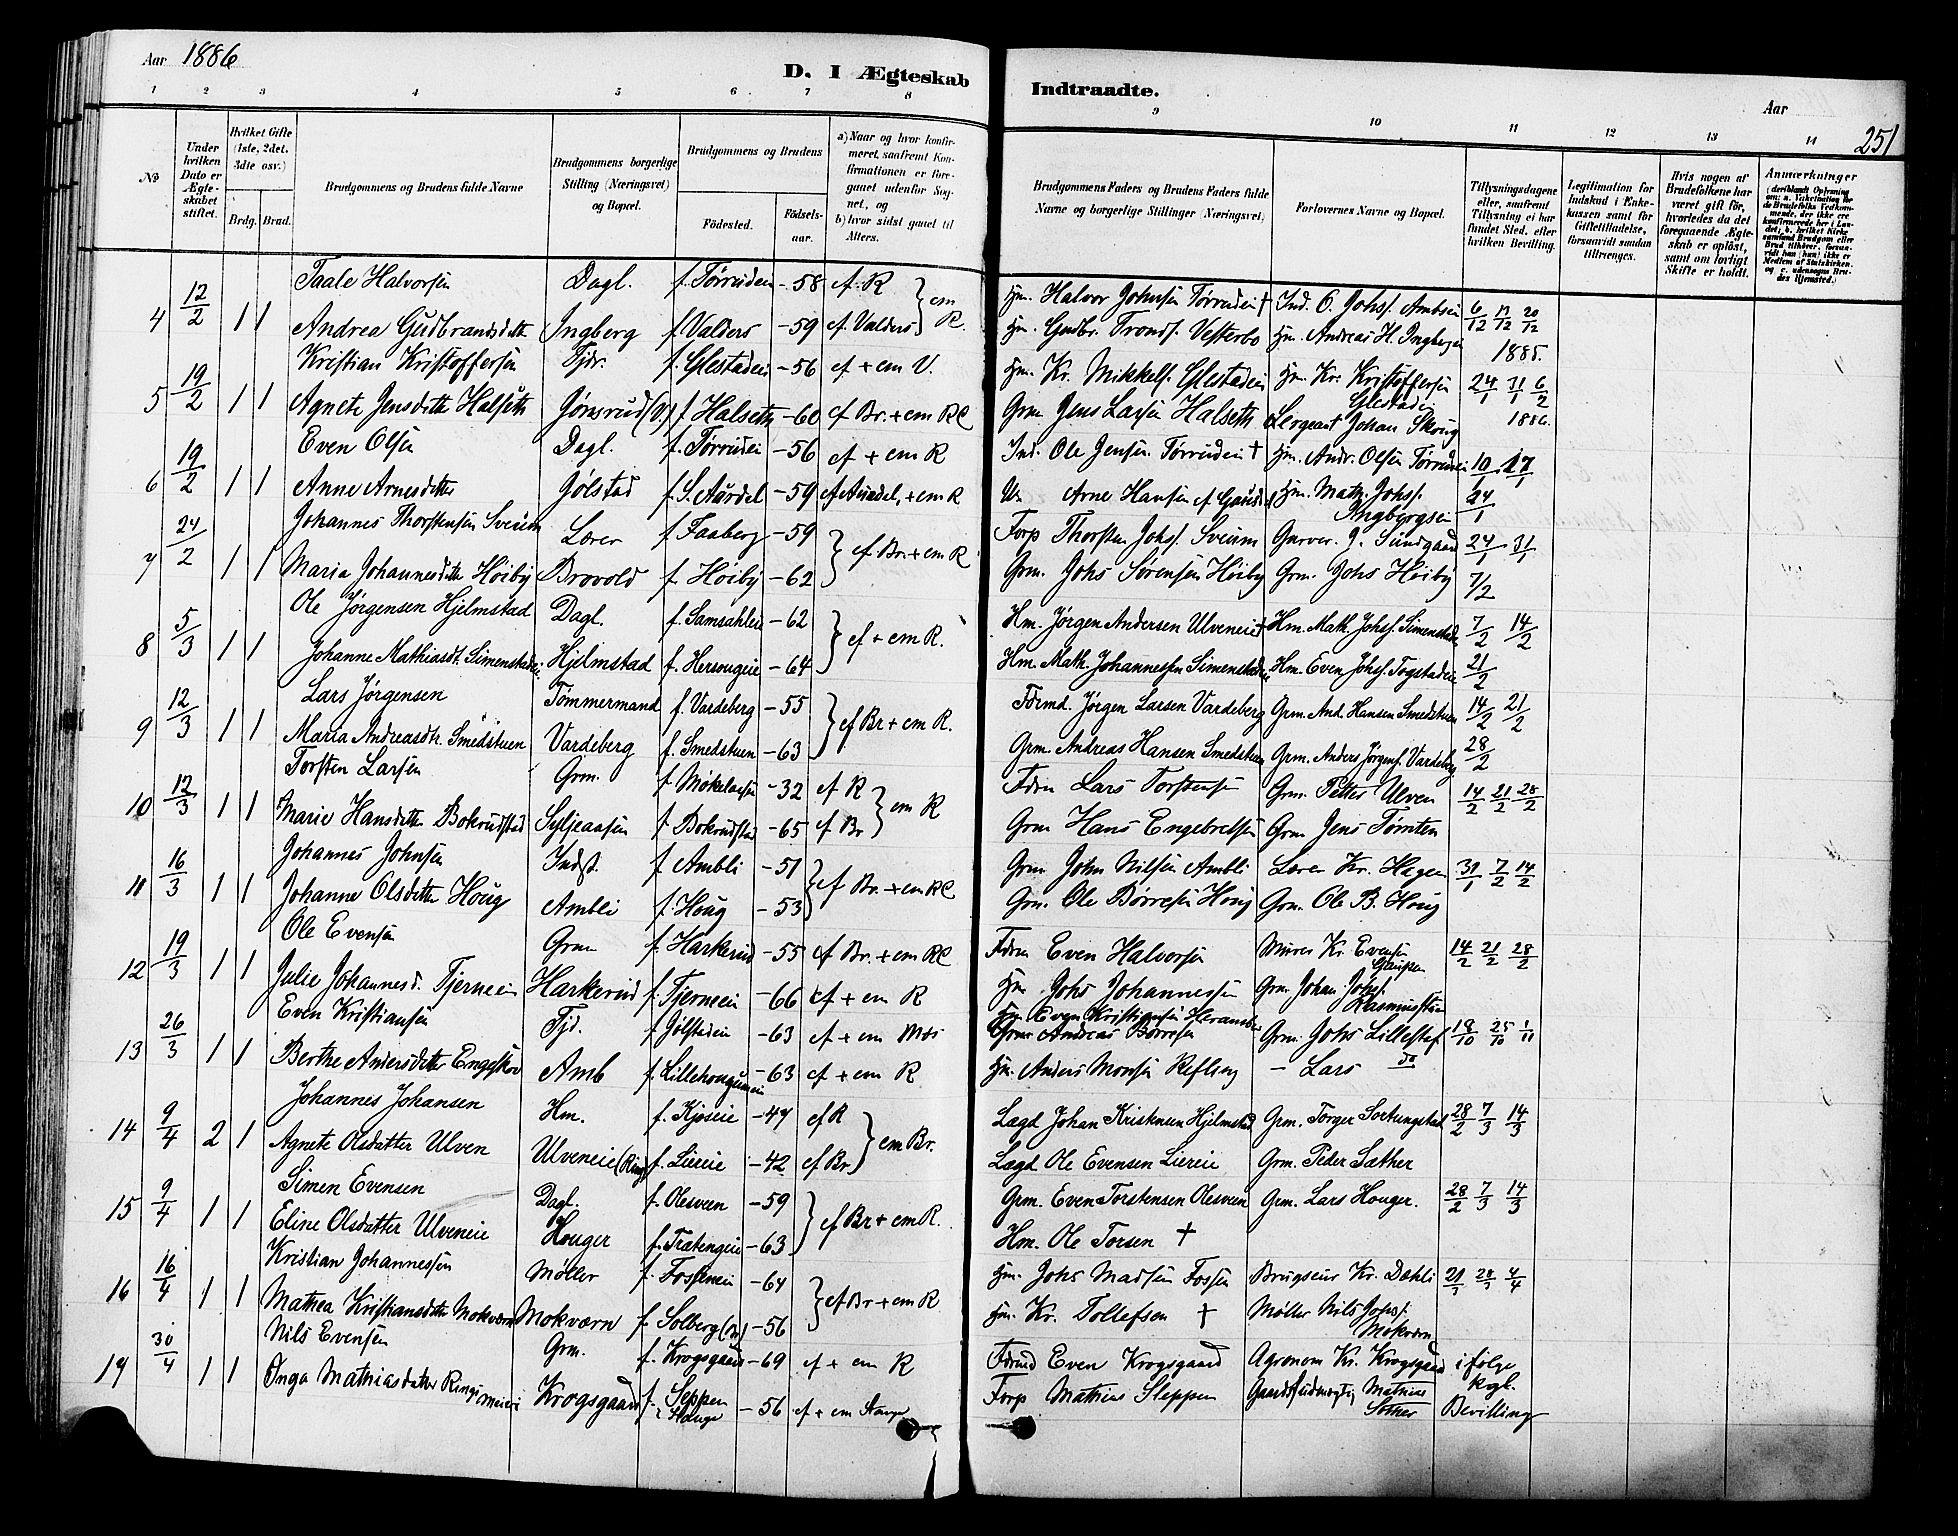 Aar 1886
D. I Ægteskab Indtraadte.
Aar
251
1 2 3 4 5 6 7 8 9 10 11 12 13 14
No
Under hvilken Dato er Ægteskabet stiftet.
Hvilket Gifte (1ste, 2det, 3die osv.)
Brdg. Brud.
Brudgommens og Brudens fulde Navne
Brudgommens borgerlige Stilling (Næringsvei) og Bopæl.
Brudgommens og Brudens
Fødested. Fødselsaar.
a) Naar og hvor konfirmeret, saafremt Konfirmationen er foregaaet udenfor Sognet, og
b) hvor sidst gaaet til Alters.
Brudgommens Faders og Brudens Faders fulde Navne og borgerlige Stillinger (Næringsvei)
Forlovernes Navne og Bopæl.
Tillysningsdagene eller, saafremt Tillysning ei har fundet Sted, efter hvilken Bevilling.
Legitimation for Indskud i Enkekassen samt for Giftetilladelse, forsaavidt saadan tiltrænges.
Hvis nogen af Brudefolkene har været gift før, hvorledes da det foregaaende Ægteskab er opløst, samt om lovligt Skifte er holdt.
Anmærkninger
4 12/2 1 1 Taale Halvorsen Dagl. f. Tørrudeie -58 cf. R Hm. Halvor Johnsen Tørrudeie † Ind. O. Johs. 6/12 13/12 20/12
Andrea Gudbrandsdatter Ingberg f. Valders -59 cf. Valders } em R. Hm. Gudbr. Tronds. Vesterbo Hm. Andreas H. 1885.
5 19/2 1 1 Kristian Kristoffersen Tjdr. f. Glestadeie -56 cf + em V. Hm. Kr. Mikkels. Glestadeie Hm. Kr. Kristoffersen Glestadeie 24/1 31/1 6/2
Agnete Jensdatter Halseth Jønsrud (V.) f. Halseth -60 cf Br. + em R Grm. Jens Larsen Halseth Sergeant Johan Skoug 1886.
6 19/2 1 1 Even Olsen Dagl. f. Tørrudei -56 cf + em R Ind. Ole Jensen Tørrudeie † Hm. Andr. Olsen Tørrudeie 10/1 17/1
Anne Arnesdatter Jølstad f. S. Aurdal -59 cf Aurdal, + em R Arne Hansen Hm. Math. Johs. Ingbergseie 24/1
7 24/2 1 1 Johannes Thorstensen Sveum Lærer f. Faaberg -59 Torp Thorsten Johs. Sveum Garver. J. Sundgaard 24/1 31/1
Maria Johannesdatter Høiby Brovold f. Høiby -62 } cf Br. + em R Grm. Johs Sørensen Høiby Grm. Johs Høiby 7/2
8 5/3 1 1 Ole Jørgensen Hjelmstad Dagl. f. Samsahleie -62 Hm. Jørgen Andersen Ulveneie † Hm. Math. Johs. Simenstadeie 7/2 14/2
Johanne Mathiasdt. Simenstadeie Hjelmstad f. Hersougeie -64 } cf + em R. Hm. Math. Johannessen Simenstadeie Hm. Even Johs. Togstadeie 21/2
9 12/3 1 1 Lars Jørgensen Tømmermand f. Vardeberg -55 Fdrmd. Jørgen Larsen Vardeberg Grm. And. Hansen Smedstuen 14/2 21/2
Maria Andreasdtr. Smedstuen Vardeberg f. Smedstuen -63 } cf Br + em R. Grm. Andreas Hansen Smedstuen Grm. Anders Jørgens. Vardeberg 28/2
10 12/3 1 1 Torsten Larsen Grm. -32 cf R Fdrm Lars Torstensen Grm. Petter Ulven 14/2 21/2 28/2
Marie Hansdatter Bokrudstad Syljeaasen f. Bokrudstad -65 cf Br } em R Grm Hans Engebretsen Grm Jens Tømten
11 16/3 1 1 Johannes Johnsen Indst. f. Ambli -51 Grm John Nilsen Ambli Lærer Kr. Hagen 31/1 7/2 14/2
Johanne Olsdatter Houg Ambli f. Houg -53 } cf Br. + em R Grm. Ole Børresen Houg Grm. Ole B. Houg
12 19/3 1 1 Ole Evensen Grm f. Harkerud -55 cf Br. + em R Fdrm Even Halvorsen Murer Kr. Evensen Gaupen 14/2 21/2 28/2
Julie Johannesd. Tjerneie Harkerud f. Tjerneie -66 cf + em R Hm. Johs Johannessen Grm. Johan Johs. Rasmusstuen
13 26/3 1 1 Even Kristiansen Tjd. f. Jølstadeie -63 cf + em Mos Hm. Even Kristiansen Grm Andreas Børresen Grm. Johs Lillestef 18/10 25/10 1/11
Berthe Andersdatter Engeskov Amb f. Lillehougumeie -63 cf + em R Hm. Anders Monsen Refling - Lars Do
14 9/4 2 1 Johannes Johansen Hm. f. Kjoseie -47 cf R Lægd Johan Kristensen Hjelmstad Grm. Torger Sortungstad 28/2 7/3 14/3
Agnete Olsdatter Ulven Ulveneie (Ring) f. Liereie -42 cf Br } em Br. Lægd Ole Evensen Liereie Grm. Peder Sæther
15 9/4 1 1 Simen Evensen Dagl. f. Olesveen -59 Grm. Even Torstensen Olesveen Grm. Lars Houger. 28/2 7/3 14/3
Eline Olsdatter Ulveneie Houger f. Trætengeie -63 } cf Br + em R. Hm. Ole Torsen †
16 16/4 1 1 Kristian Johannessen Møller f. Fosseneie -64 Hm. Johs Madsen Fossen Brugseier Kr. Dæhli 21/3 28/3 4/4
Mathea Kristiansdatter Mokværn Mokværn f. Solberg (N) -56 } cf Br + em R Hm. Kr. Tollefsen † Møller Nils Johs. Mokværn
17 30/4 1 1 Nils Evensen Grm. f. Krogsgaard -69 cf + em R Fdrmd Even Krogsgaard Agronom Kr. Krogsgaard ifølge kgl.
Inga Mathiasdatter Ringsmeieri Krogsgaard f. Sleppen i Stange -56 cf + em Stange Torp Mathias Sleppen Gaardsfuldmægtig Mathias Bevilling